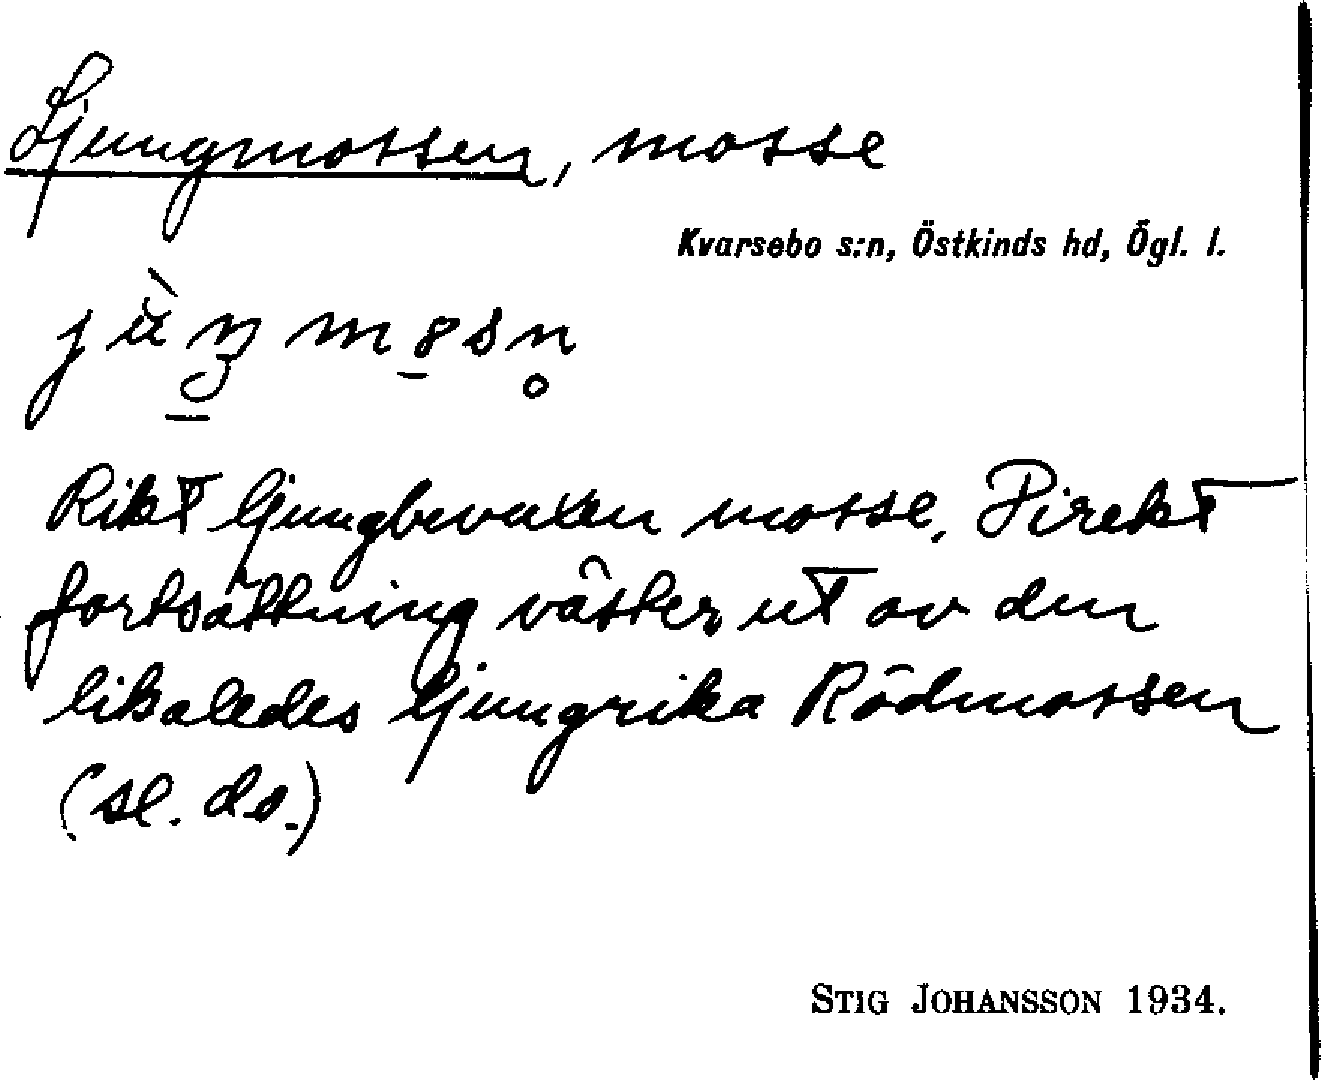 Ljungmossen, mosse
Kvarsebo s:n, Östkinds hd, Ögl. l.
Rikt ljungbevuxen mosse. Direkt
fortsättning väster ut av den
likaledes ljungrika Rödmossen
(se. do.)
STIG JOHANSSON 1934.